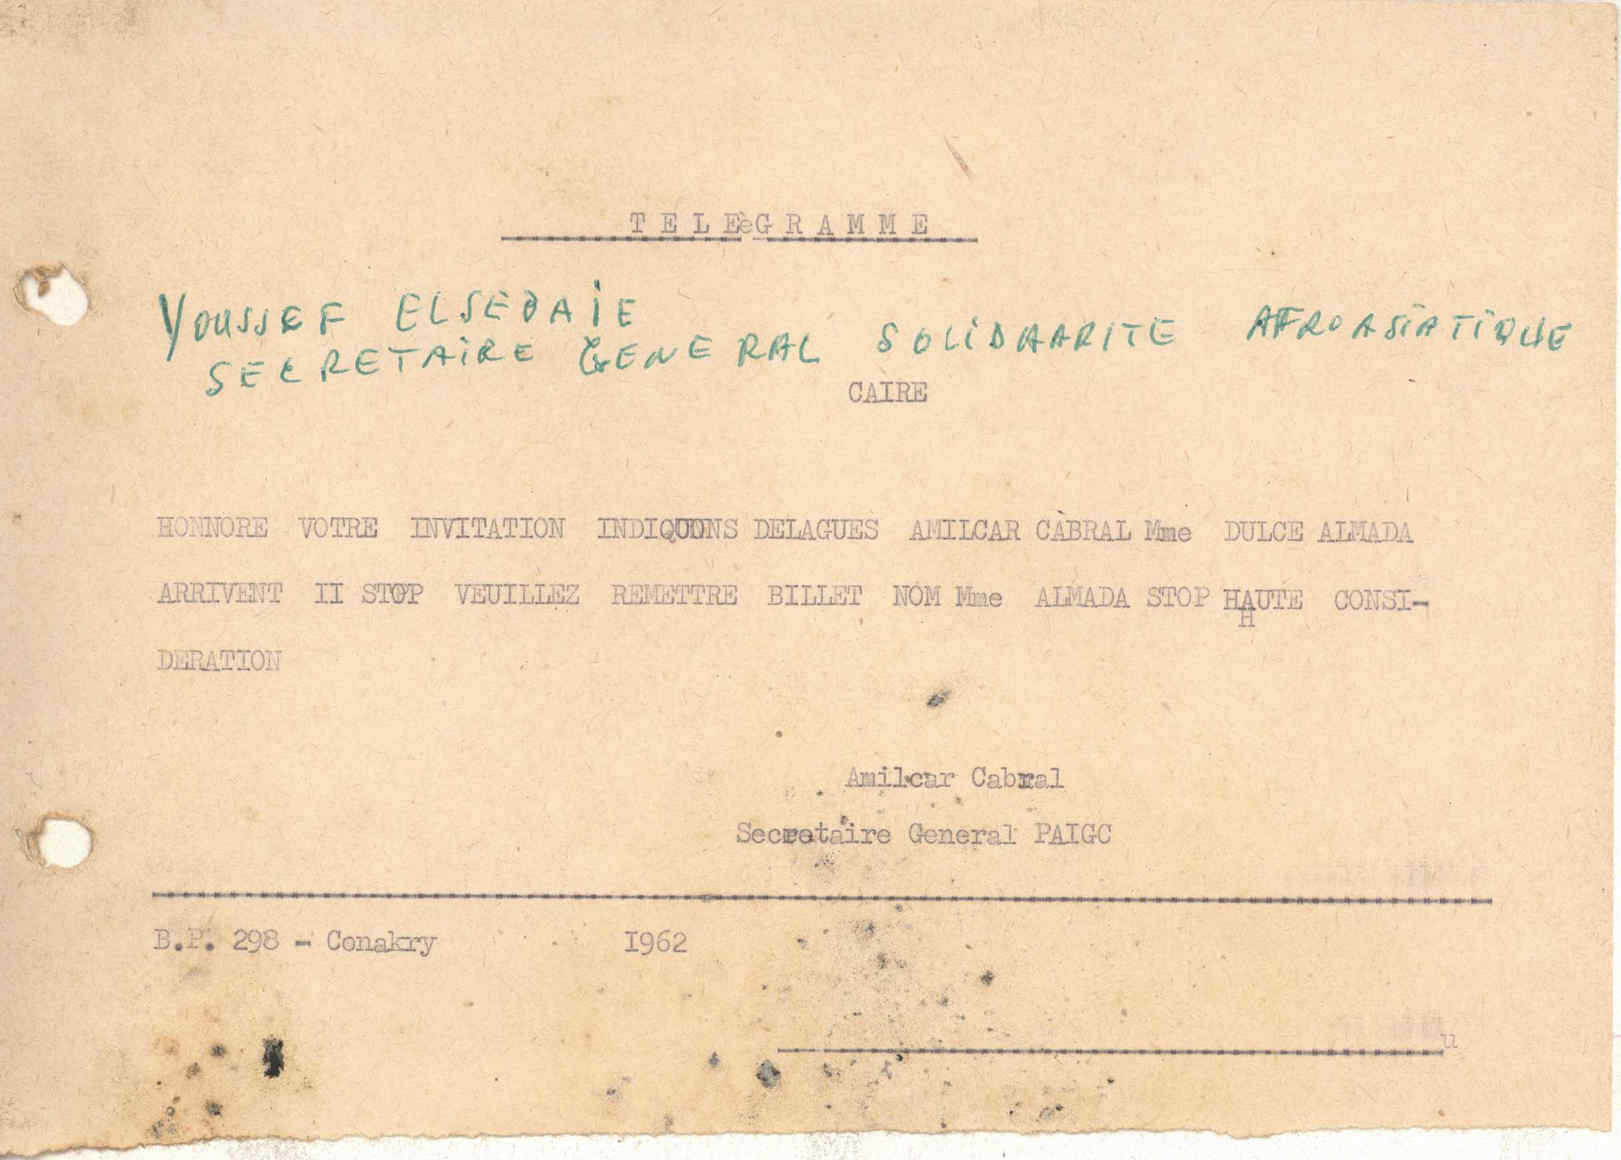 TELEGRAMME
YOUSSEF ELSEDAIE
SECRETAIRE GENERAL SOLIDAARITE AFROASIATIQUE
CAIRE
HONNORE VOTRE INVITATION INDIQUONS DELAGUES AMILCAR CABRAL Mme DULCE ALMADA
ARRIVENT II STOP VEUILLEZ REMETTRE BILLET NOM Mme ALMADA STOP HAUTE CONSI-
DERATION
Amilcar Cabral
Secretaire General PAIGC
B.P. 298 - Conakry I962